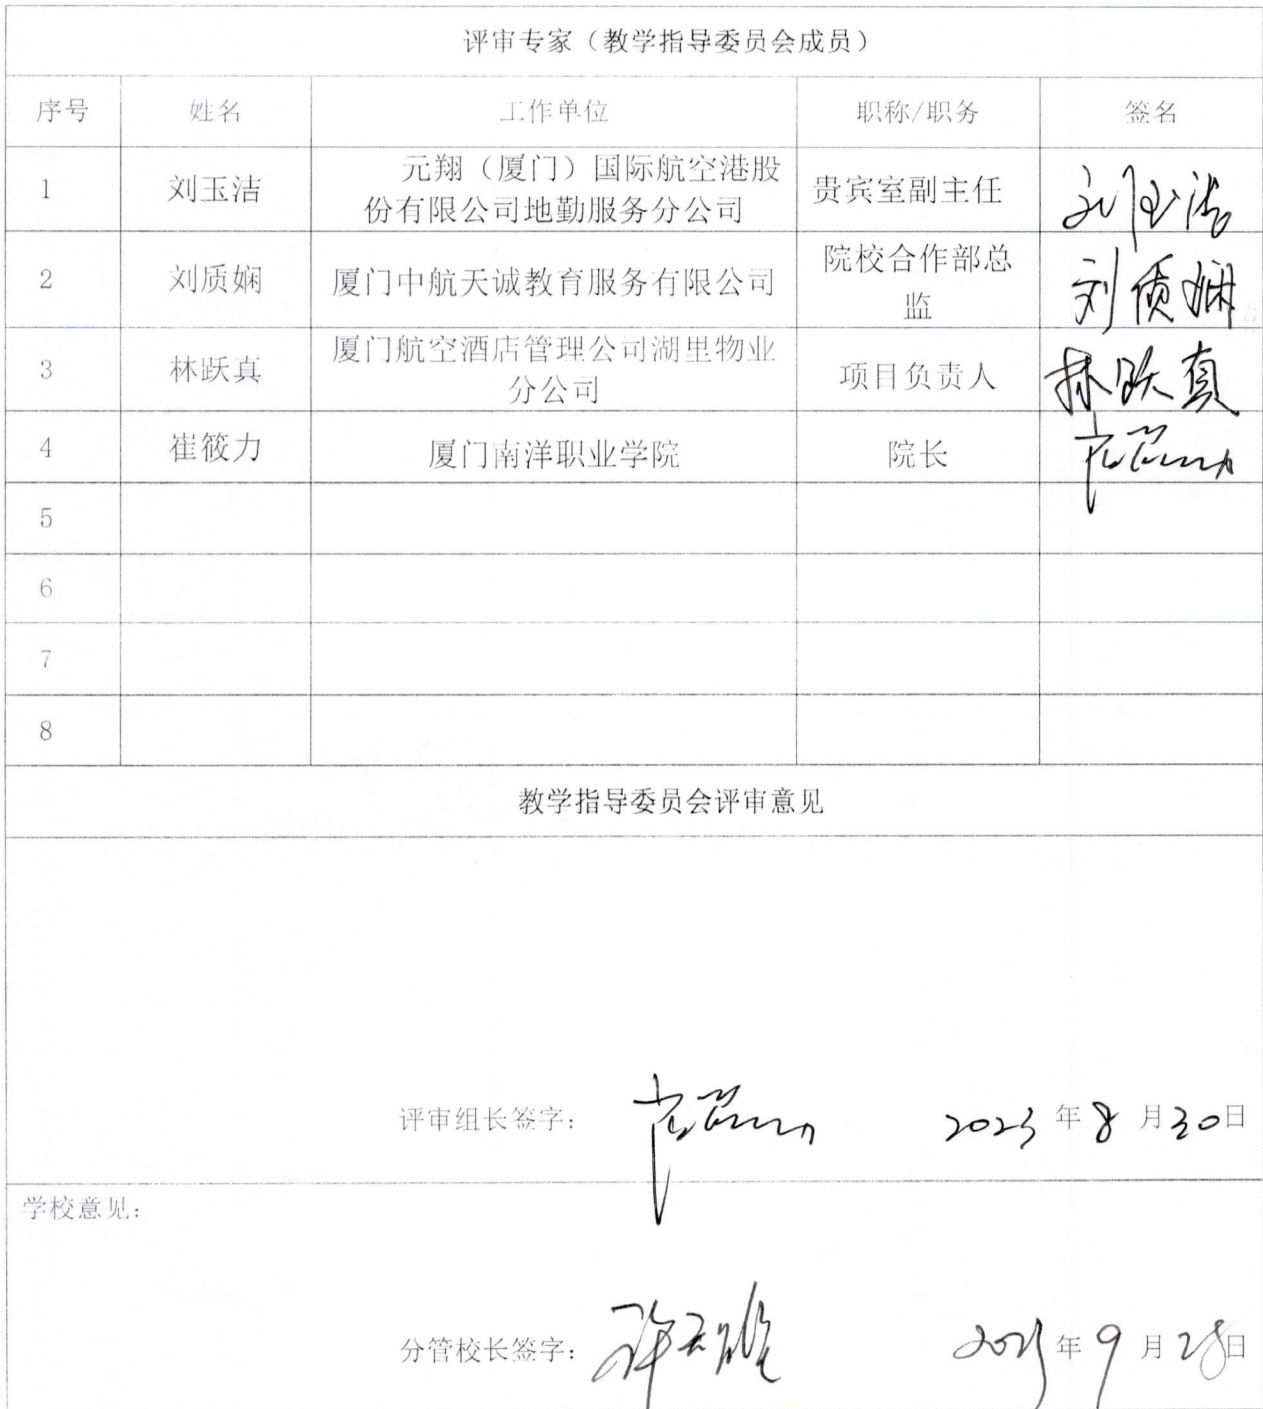 评审专家（教学指导委员会成员）
序号 姓名 工作单位 职称/职务 签名
1 刘玉洁 元翔（厦门）国际航空港股 贵宾室副主任 刘玉洁
份有限公司地勤服务分公司
2 刘质娴 厦门中航天诚教育服务有限公司 院校合作部总 刘质娴
监
3 林跃真 厦门航空酒店管理公司湖里物业 项目负责人 林跃真
分公司
4 崔筱力 厦门南洋职业学院 院长 崔筱力
5
6
7
8
教学指导委员会评审意见
评审组长签字： 崔筱力 2023 年 8 月 30 日
学校意见：
分管校长签字： 年 9 月 28 日